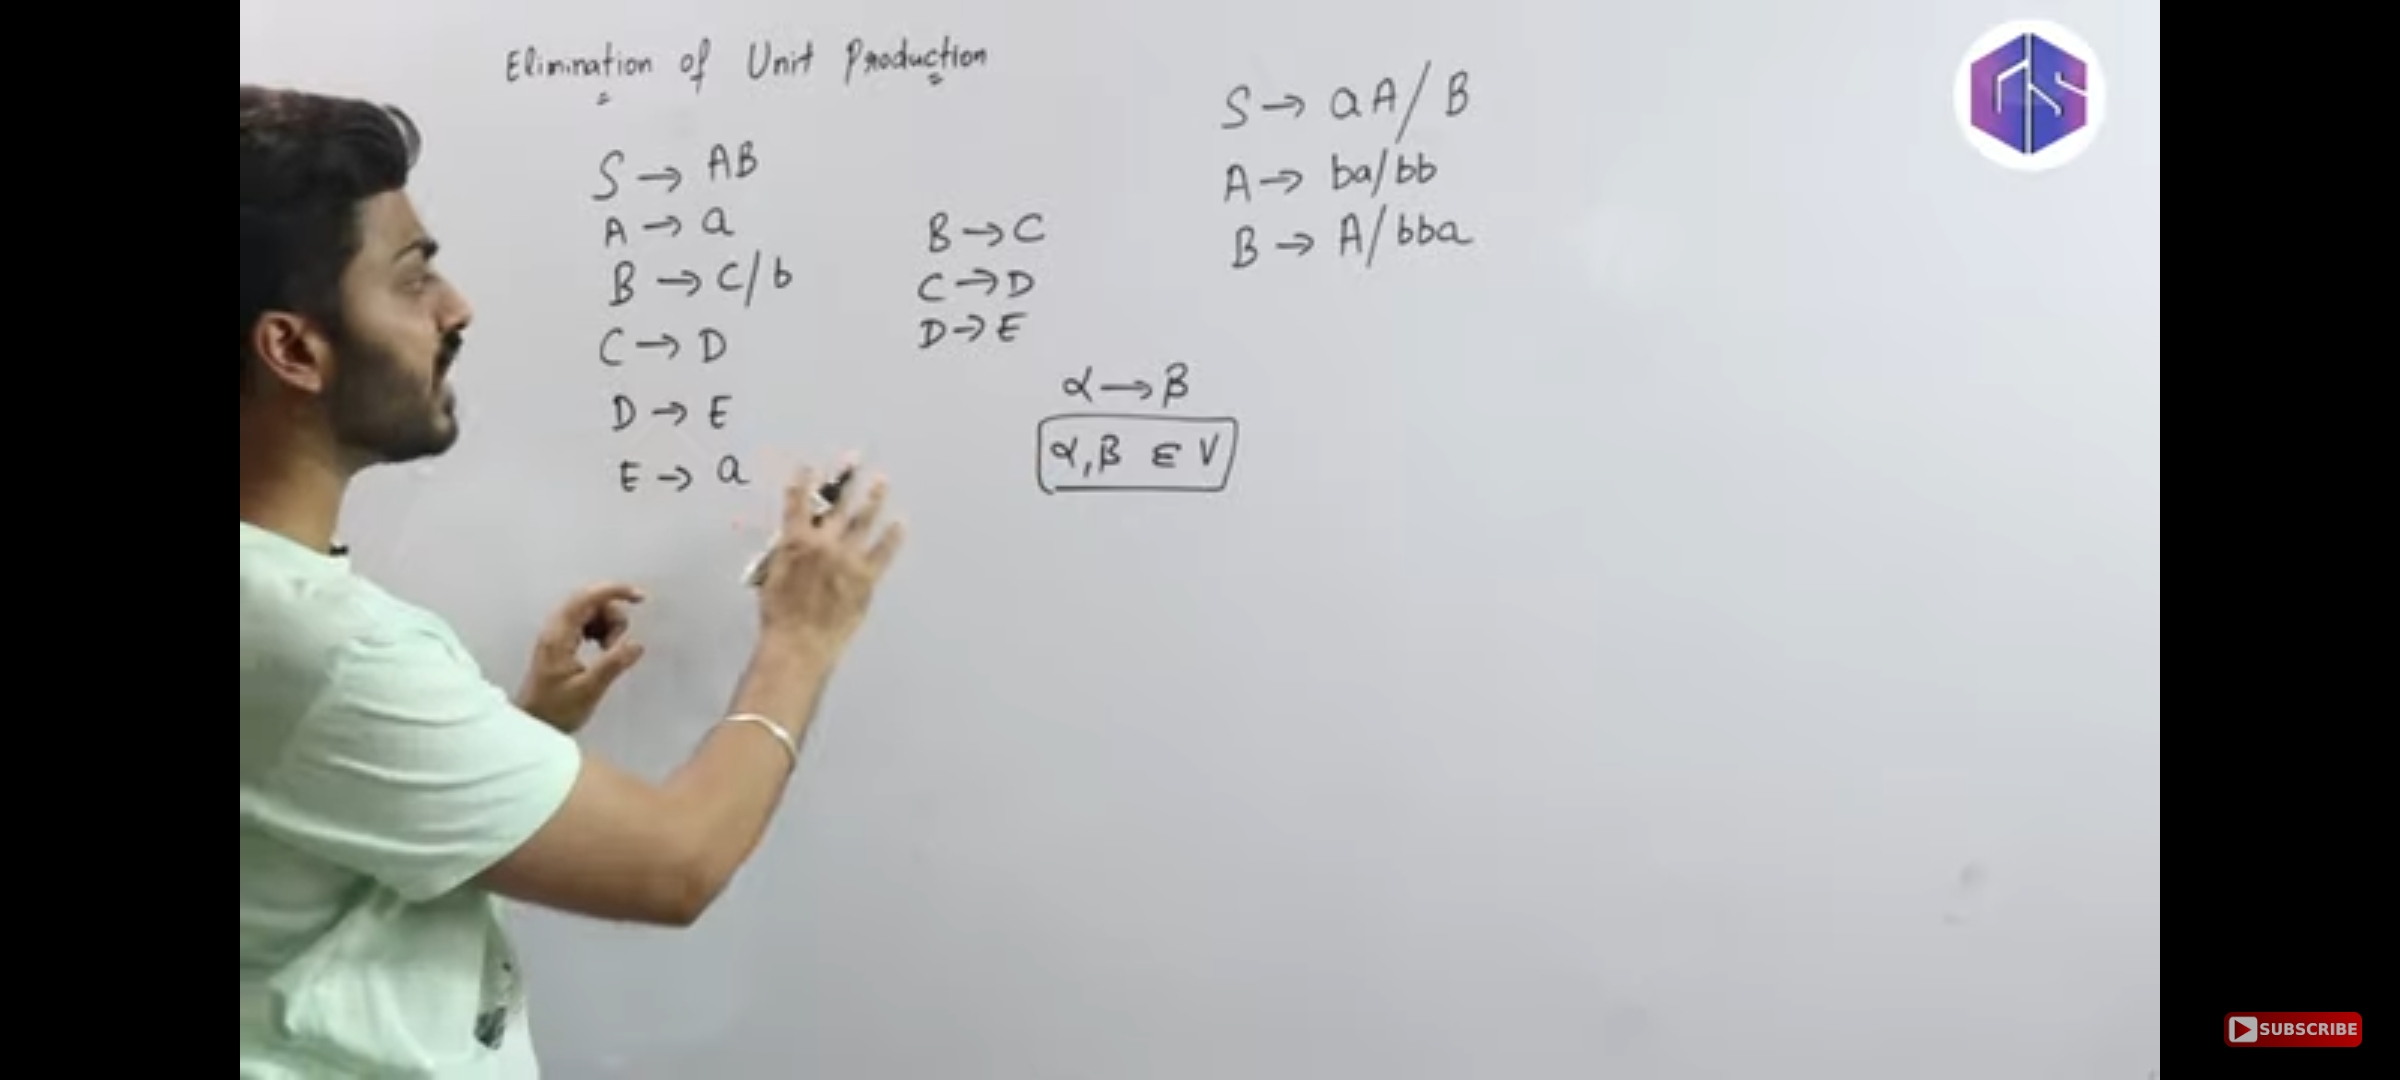 Elimination of Unit Production
S → AB
A → a
B → C/b
C → D
D → E
E → a
B → C
C → D
D → E
α → β
α, β ∈ V
S → aA/B
A → ba/bb
B → A/bba
GS
SUBSCRIBE